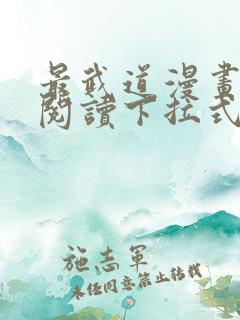 最武道漫畫
閱讀下拉式
施志軍
未任同意禁止轉載